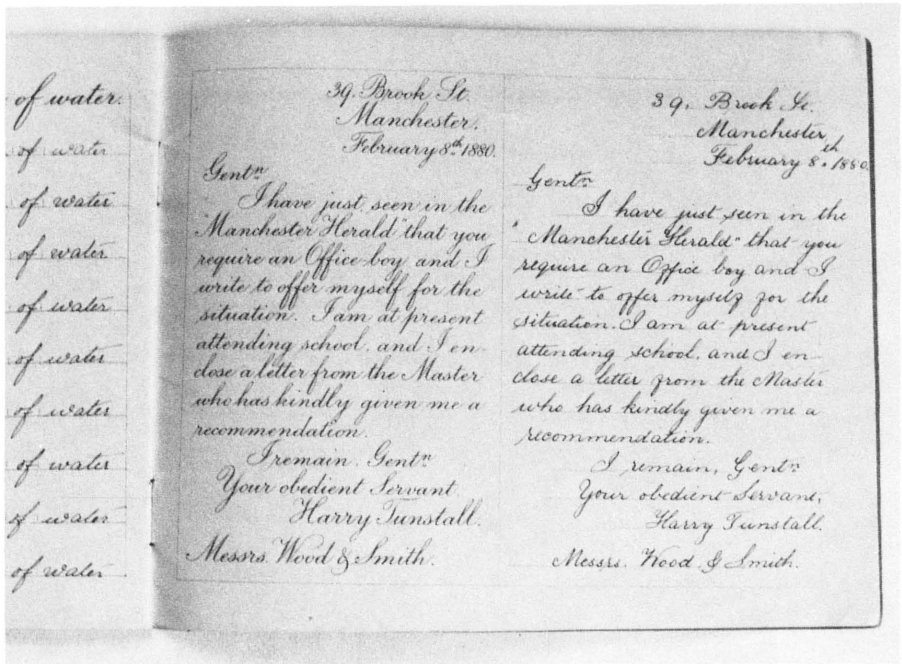 of water.
of water
of water
of water
of water
of water
of water
of water
of water
of water
39. Brook St.
Manchester.
February 8th. 1880.
Gentn
I have just seen in the
"Manchester Herald" that you
require an Office-boy and I
write to offer myself for the
situation. I am at present
attending school, and I en-
close a letter from the Master
who has kindly given me a
recommendation.
I remain. Gentn
Your obedient Servant
Harry Tunstall.
Messrs. Wood & Smith.
39. Brook St.
Manchester
February 8.th 1880.
Gentn
I have just seen in the
"Manchester Herald" that you
require an Office boy and I
write to offer myself for the
situation. I am at present
attending school, and I en-
close a letter from the Master
who has kindly given me a
recommendation.
I remain, Gentn
Your obedient Servant,
Harry Tunstall.
Messrs. Wood & Smith.